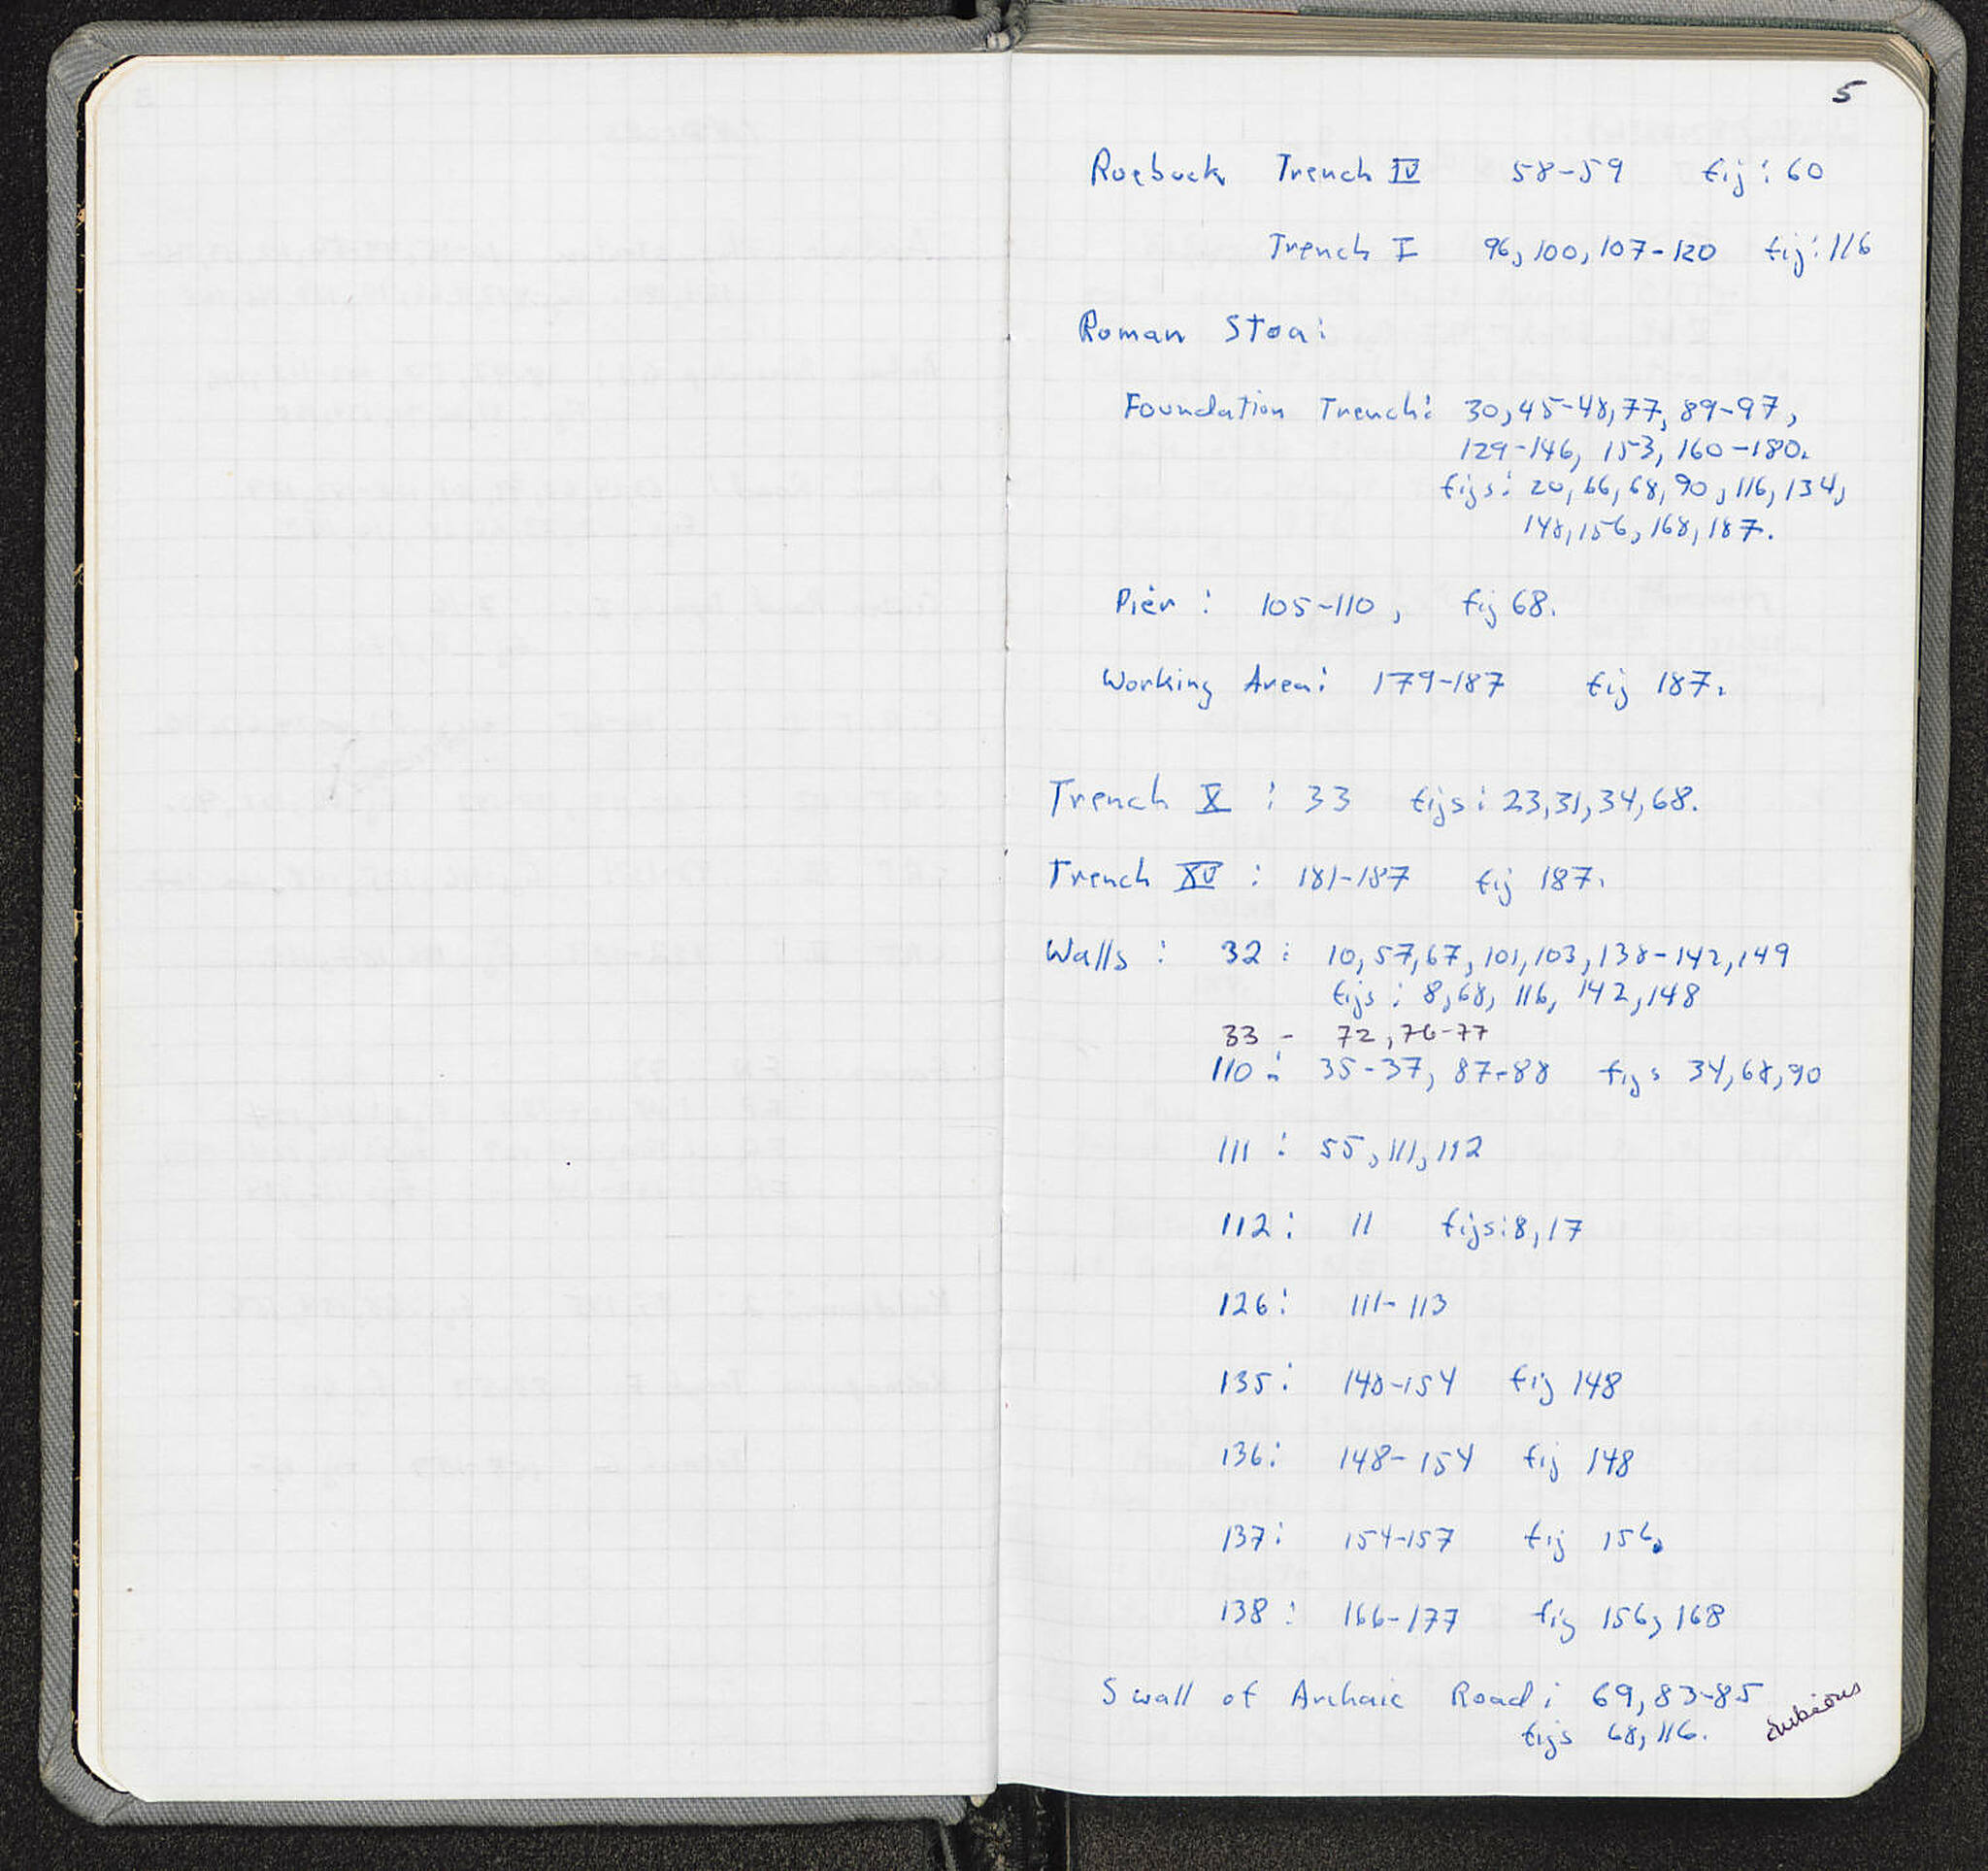 5
Roebuck Trench IV 58-59 fig: 60
Trench I 96, 100, 107-120 fig: 116
Roman Stoa:
Foundation Trench: 30, 45-48, 77, 89-97,
129-146, 153, 160-180.
figs: 20, 66, 68, 90, 116, 134,
148, 156, 168, 187.
Pier: 105-110, fig 68.
Working Area: 179-187 fig 187.
Trench X : 33 figs: 23, 31, 34, 68.
Trench XV : 181-187 fig 187.
Walls : 32 : 10, 57, 67, 101, 103, 138-142, 149
figs : 8, 68, 116, 142, 148
33 - 72, 76-77
110 : 35-37, 87-88 figs 34, 68, 90
111 : 55, 111, 112
112: 11 figs: 8, 17
126: 111-113
135: 148-154 fig 148
136: 148-154 fig 148
137: 154-157 fig 156.
138 : 166-177 fig 156, 168
S wall of Archaic Road: 69, 83-85
figs 68, 116.
dubious